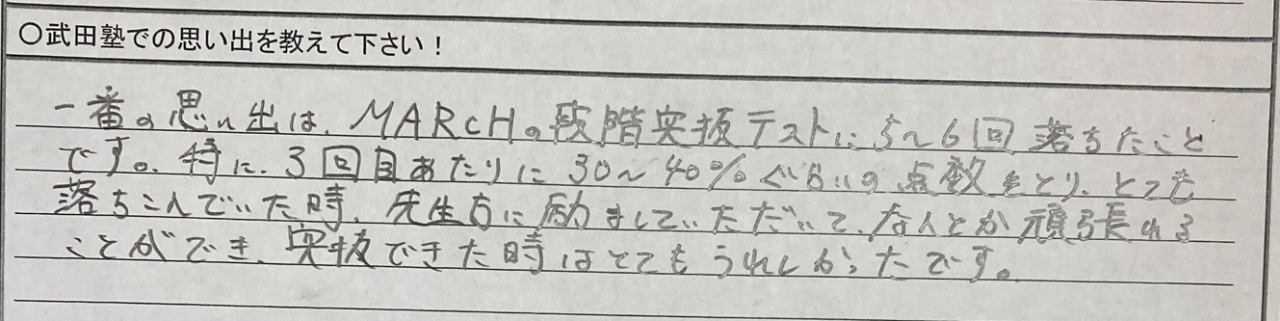 ○武田塾での思い出を教えて下さい！
一番の思い出は、MARCHの段階突破テストに5~6回落ちたこと
です。特に、3回目あたりに30~40%ぐらいの点数をとり、とても
落ちこんでいた時、先生方に励ましていただいて、なんとか頑張れる
ことができ、突破できた時はとてもうれしかったです。